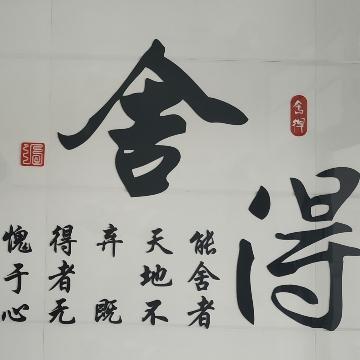 舍得
舍得
能舍者
天地不
弃既
得者无
愧于心